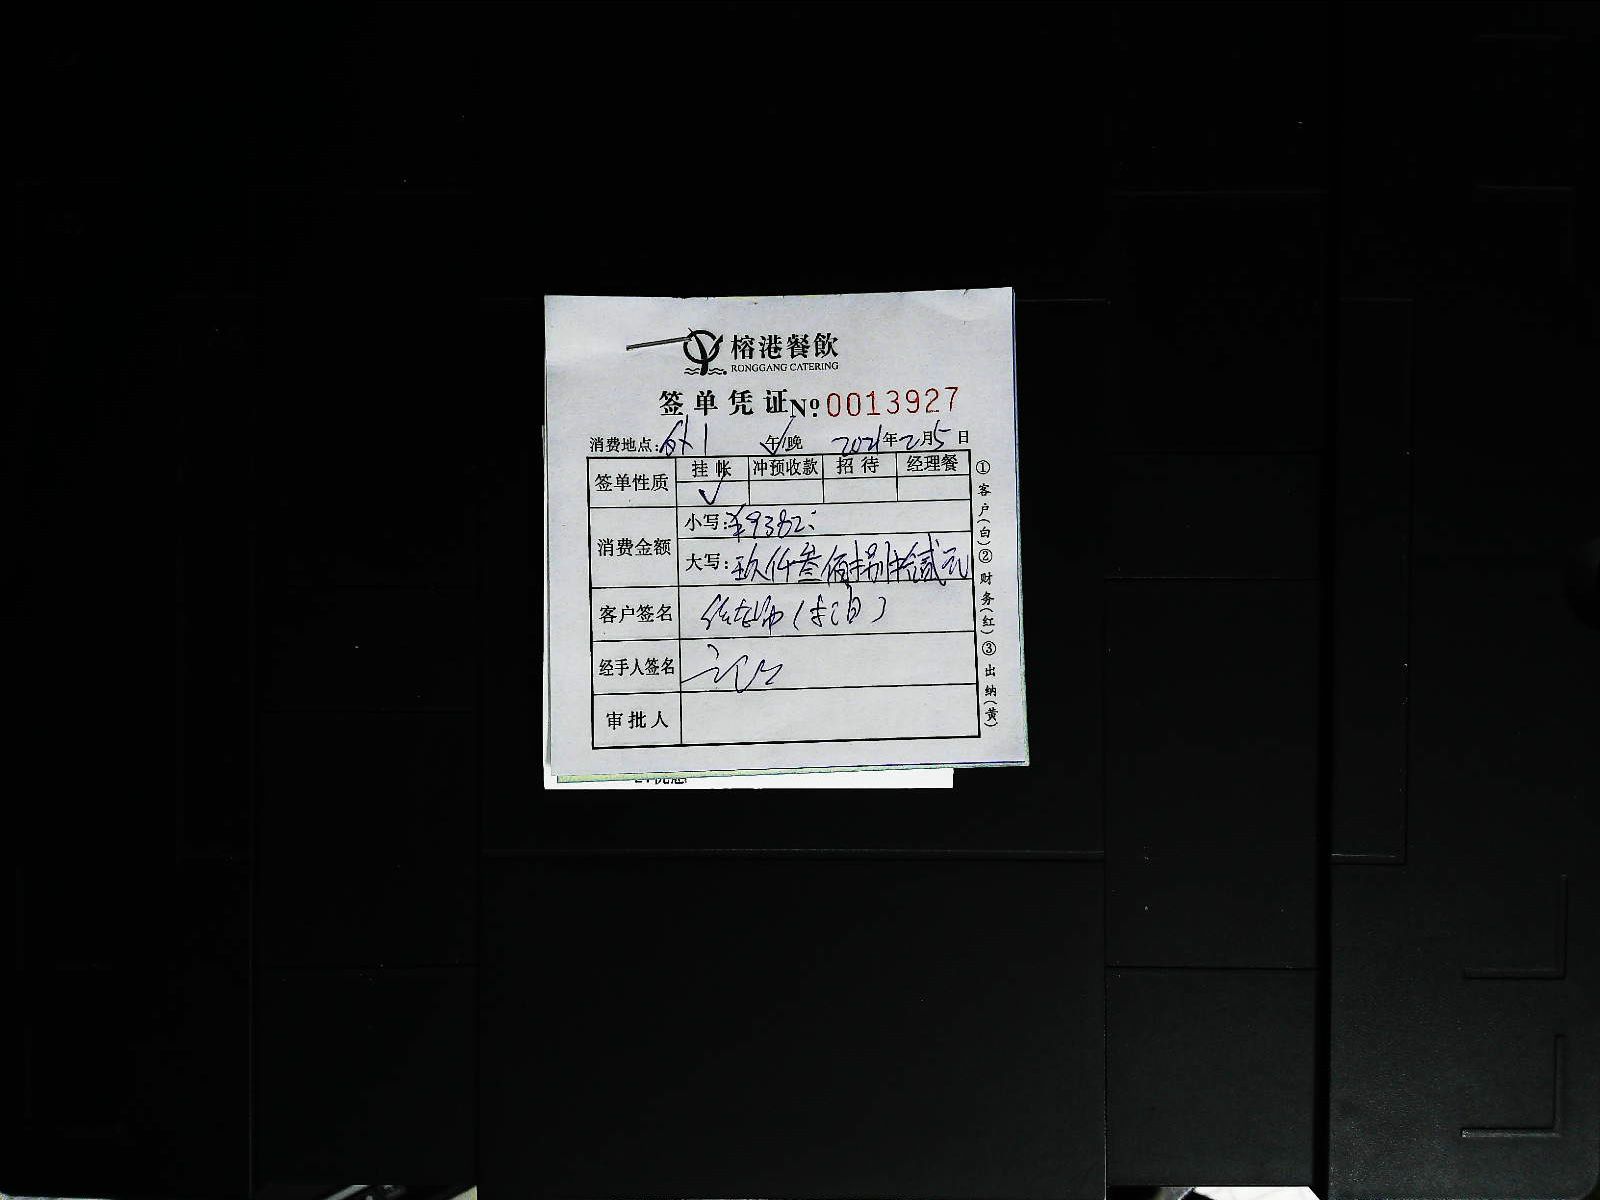 榕港餐飲
RONGGANG CATERING
签单凭证 Nº 0013927
消费地点: 午/晚 2021年2月5日
签单性质 挂帐 冲预收款 招待 经理餐
✓
消费金额 小写:¥9382
大写:玖仟叁佰捌拾贰元
客户签名
经手人签名
审批人
①客户(白)②财务(红)③出纳(黄)